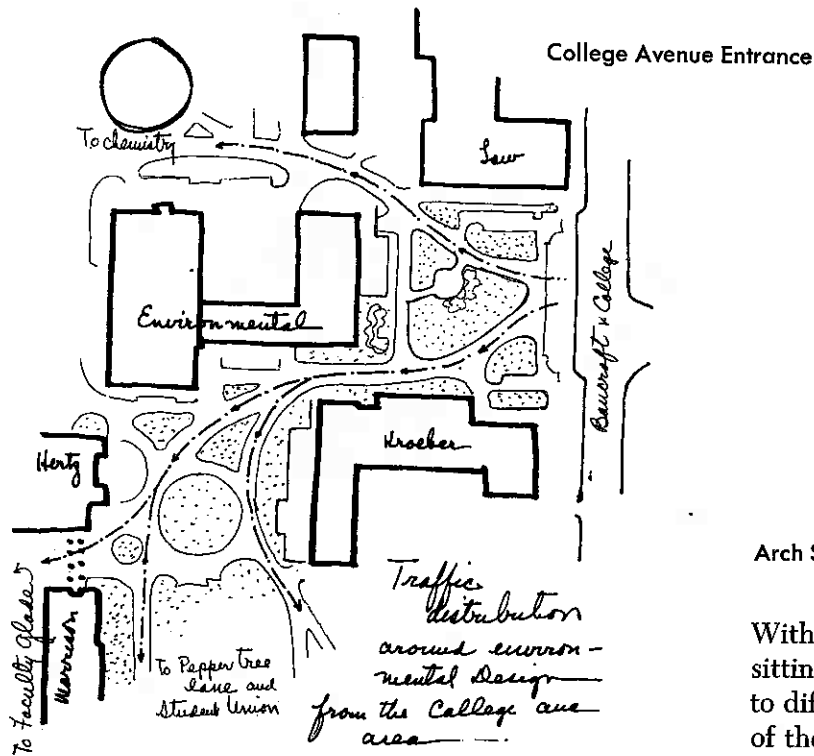 College Avenue Entrance
To chemistry
Law
Environmental
Bancroft & College
Kroeber
Hertz
Morrison
To Faculty Glade
To Pepper tree
lane and
Student Union
Traffic
distribution
around environ-
mental Design
from the College ave
area
Arch S
With
sitting
to dif
of the